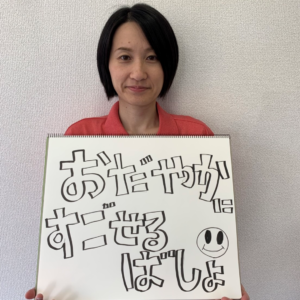 おだやかに
すごせる
ばしょ